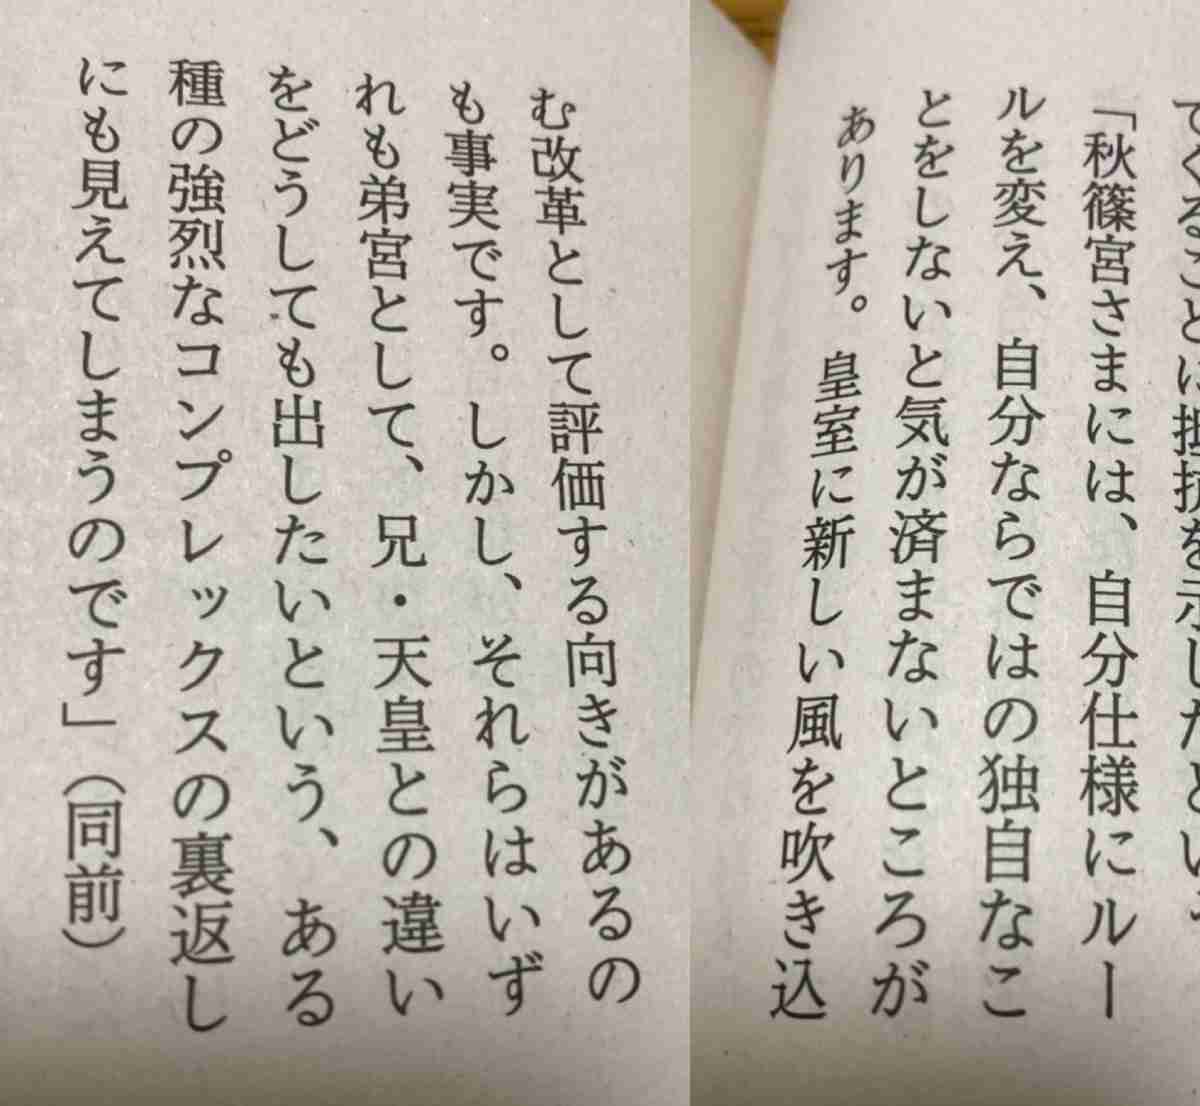 てくることに抵抗を示したとい
「秋篠宮さまには、自分仕様にルー
ルを変え、自分ならではの独自なこ
とをしないと気が済まないところが
あります。皇室に新しい風を吹き込
む改革として評価する向きがあるの
も事実です。しかし、それらはいず
れも弟宮として、兄・天皇との違い
をどうしても出したいという、ある
種の強烈なコンプレックスの裏返し
にも見えてしまうのです」（同前）